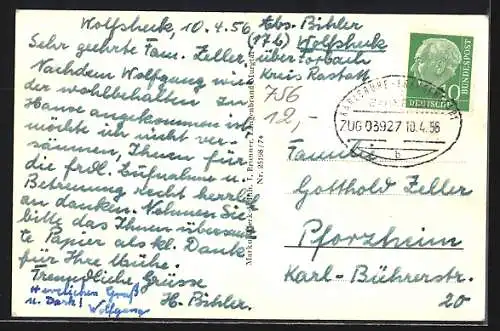 Wolfsheck, 10.4.56
Sehr geehrte Fam. Zeller.
Nachdem Wolfgang wie-
der wohlbehalten zu
Hause angekommen ist
möchte ich nicht ver-
säumen, Ihnen für
die frdl. Aufnahme u.
Betreuung recht herzl.
zu danken. Nehmen Sie
bitte das Ihnen übersand-
te Papier als kl. Dank
für Ihre Mühe.
Freundliche Grüsse
H. Bihler.
Herzlichen Gruß
u. Dank! Wolfgang
Nr. 25198/74
Abs. Bihler
(17b) Wolfsheck
über Forbach
Kreis Rastatt
756
12,-
10
DEUTSCHE
BUNDESPOST
KARLSRUHE
ZUG 03927 10.4.56
b
Familie
Gotthold Zeller
Pforzheim
Karl-Bührerstr.
20